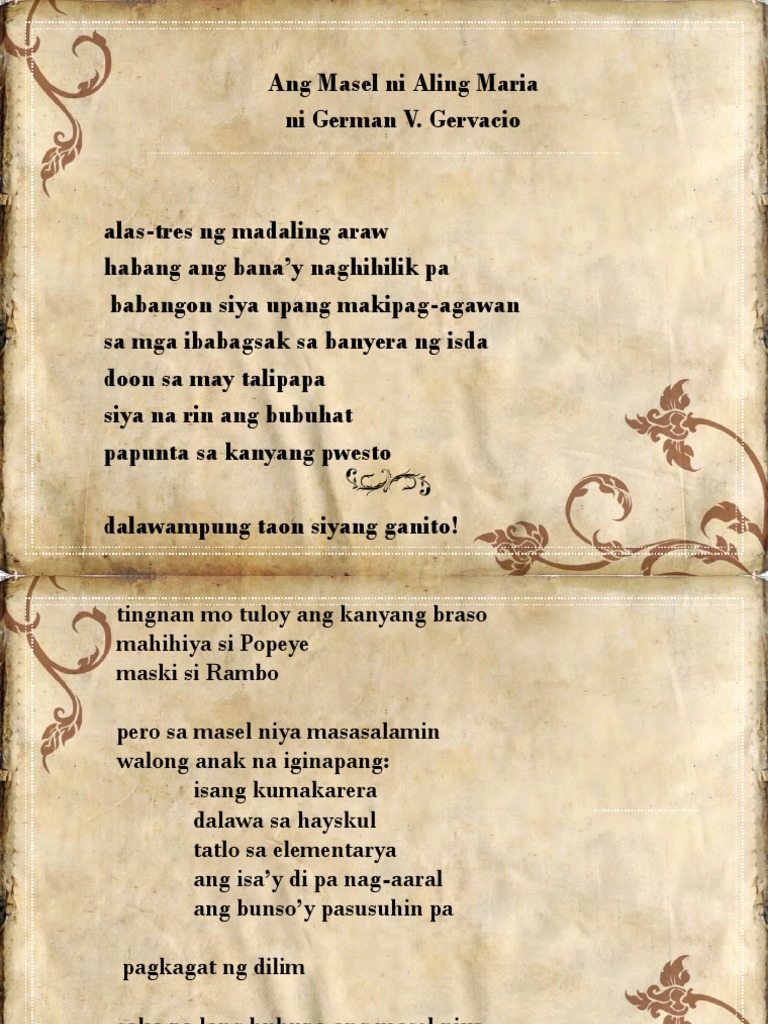 Ang Masel ni Aling Maria
ni German V. Gervacio
alas-tres ng madaling araw
habang ang bana’y naghihilik pa
babangon siya upang makipag-agawan
sa mga ibabagsak sa banyera ng isda
doon sa may talipapa
siya na rin ang bubuhat
papunta sa kanyang pwesto
dalawampung taon siyang ganito!
tingnan mo tuloy ang kanyang braso
mahihiya si Popeye
maski si Rambo
pero sa masel niya masasalamin
walong anak na iginapang:
isang kumakarera
dalawa sa hayskul
tatlo sa elementarya
ang isa’y di pa nag-aaral
ang bunso’y pasusuhin pa
pagkagat ng dilim